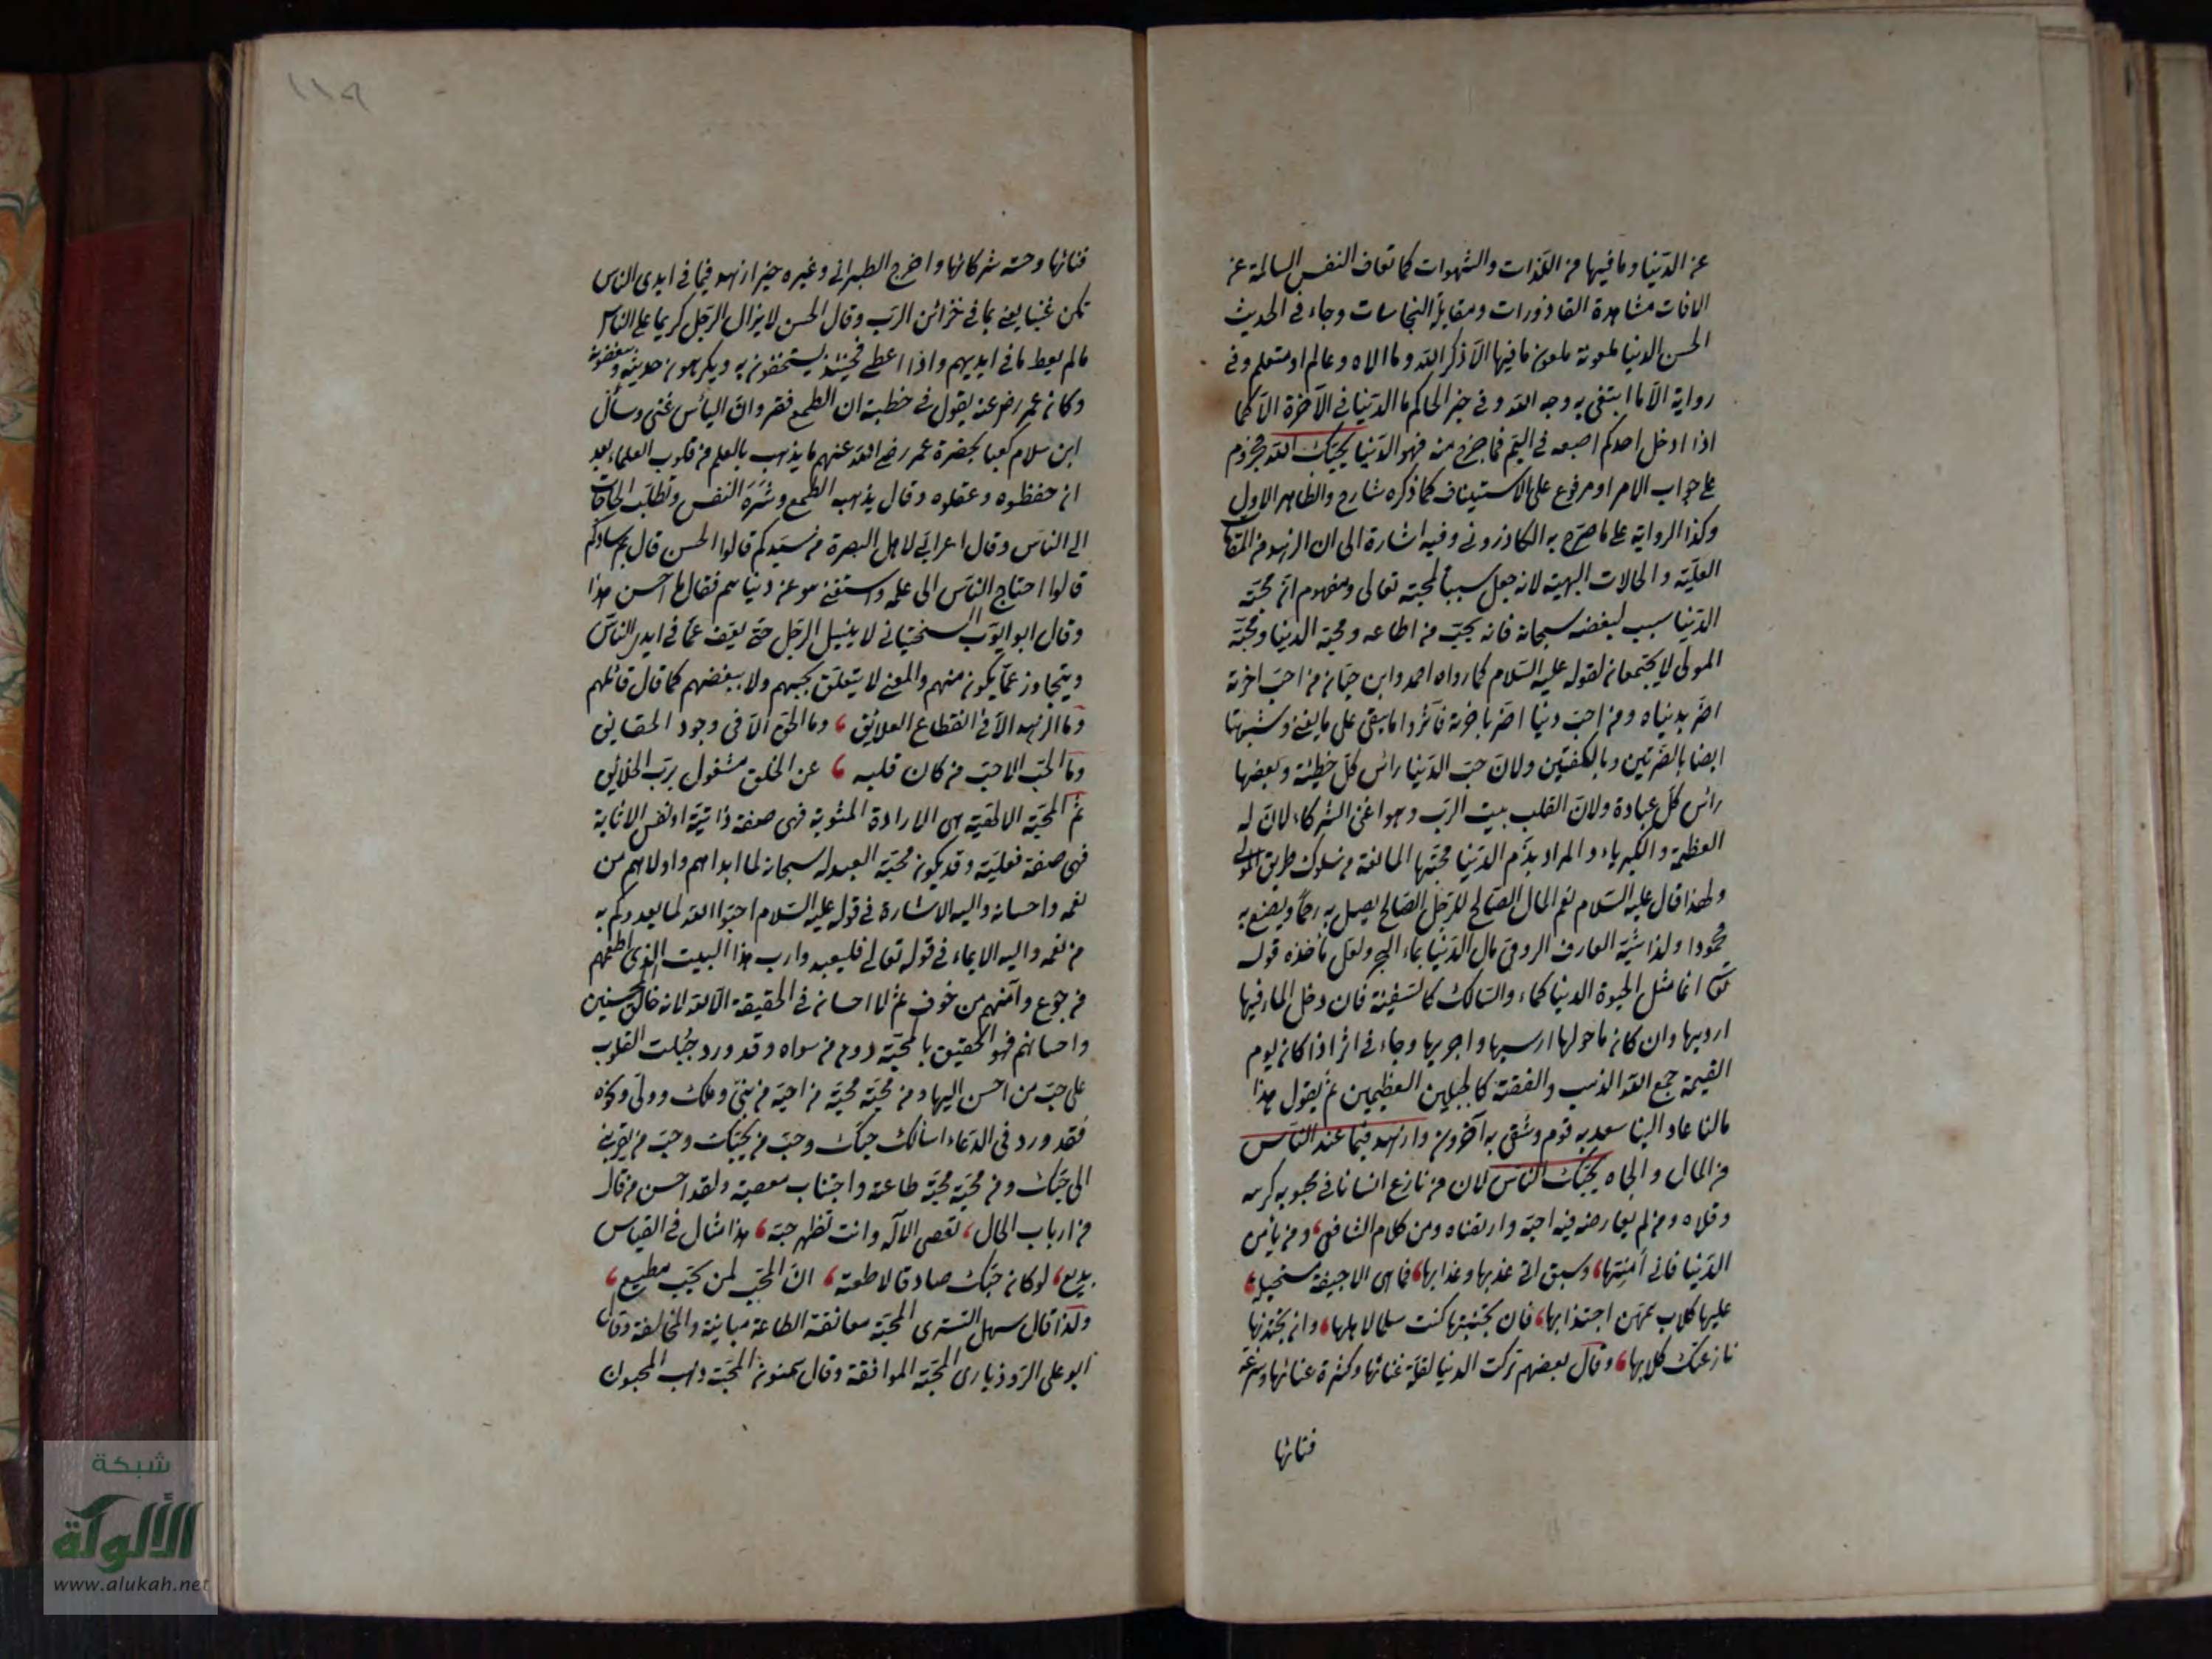 عن الدنيا وما فيها من اللذات والشهوات كما تعاف النفس السالمة عن
الافات مشاهدة القاذورات ومقابلة النجاسات وجاء في الحديث
الحسن الدنيا ملعونة ملعون ما فيها الا ذكر الله وما والاه وعالم او متعلم وفي
رواية الا ما ابتغى به وجه الله وفي خبر الحاكم ما الدنيا في الآخرة الا كما
اذا ادخل احدكم اصبعه في اليم فما خرج منه فهو الدنيا يحبك الله مجزوم
على جواب الامر او مرفوع على الاستيناف كما ذكره شارح والظاهر الاول
وكذا الرواية على ما صرح به الكازروني وفيه اشارة الى ان الزهد من المقامات
العلية والحالات البهية لانه جعل سببا لمحبته تعالى ومفهوم انه محبة
الدنيا سبب لبغضه سبحانه فانه يحب من اطاعه ومحبة الدنيا ومحبة
المولى لا يجتمعان لقوله عليه السلام كما رواه احمد وابن حبان من احب اخرته
اضر بدنياه ومن احب دنيا اضر باخرته فآثروا ما يبقى على ما يفنى وشبهتا
ايضا بالضرتين وبالكفتين ولان حب الدنيا راس كل خطيئة وبغضها
راس كل عبادة ولان القلب بيت الرب وهو اغنى الشركاء لان له
العظمة والكبرياء والمراد بذم الدنيا محبتها المانعة من سلوك طريق المولى
ولهذا قال عليه السلام نعم المال الصالح للرجل الصالح يصل به رحما ويصنع به
محمودا ولذا شبه العارف الرومي مال الدنيا بماء البحر ولعل ماخذه قوله
تعالى انما مثل الحيوة الدنيا كماء والسالك كالسفينة فان دخل الماء فيها
ارديها وان كان ما حولها ارسيها واجريها وجاء في اثر اذا كان يوم
القيمة جمع الله الذهب والفضة كالجبلين العظيمين ثم يقول هذا
مالنا عاد الينا سعد به قوم وشقى به آخرون وازهد فيما عند الناس
من المال والجاه يحبك الناس لان من نازع انسانا في محبوبه كرهه
وقلاه ومن لم يعارضه فيه احبه وارتضاه ومن كلام الشافعي، ومن يامن
الدنيا فاني امنتها، وسيق الي عذبها وعذابها، فما هي الا جيفة مستحيلة،
عليها كلاب همهن اجتذابها، فان تجتنبها كنت سلما لاهلها، وان تجتذبها
نازعتك كلابها، وقال بعضهم تركت الدنيا لقلة غنائها وكثرة عنائها وسرعة
فنائها
فنائها وخسة شركائها واخرج الطبراني وغيره خبر ازهد فيما في ايدي الناس
تكن غنيا يعني بما في خزائن الرب وقال الحسن لا يزال الرجل كريما على الناس
ما لم يعط ما في ايديهم واذا اعطى فحينئذ يستخفون به ويكرهون حديثه ويبغضونه
وكان عمر رضي عنه يقول في خطبته ان الطمع فقر وان الياس غنى وسأل
ابن سلام كعبا بحضرة عمر رضي الله عنهم ما يذهب بالعلم من قلوب العلماء بعد
ان حفظوه وعقلوه وقال يذهبه الطمع وشره النفس وتطلب الحاجات
الى الناس وقال اعرابي لاهل البصرة من سيدكم قالوا الحسن قال بم سادكم
قالوا احتاج الناس الى علمه واستغنى هو عن دنياهم فقال ما احسن هذا
وقال ابو ايوب السختياني لا ينبل الرجل حتى يعف عما في ايدي الناس
ويتجاوز عما يكون منهم والمعنى لا يتعلق بحبهم ولا ببغضهم كما قال قائلهم
وما الزهد الا في انقطاع العلايق، وما الحق الا في وجود الحقايق
وما الحب الا حب من كان قلبه، عن الخلق مشغول برب الخلايق
ثم المحبة الالهية هي الارادة المثوبة فهي صفة ذاتية او نفس الاثابة
فهي صفة فعلية وقد يكون محبة العبد له سبحانه لما ابداهم واولاهم من
نعمه واحسانه واليه الاشارة في قوله عليه السلام احبوا الله لما يغدوكم به
من نعمه واليه الايماء في قوله تعالى فليعبدوا رب هذا البيت الذي اطعمهم
من جوع وآمنهم من خوف ثم لا احسان في الحقيقة الا لله لانه خالق المحسنين
واحسانهم فهو الحقيق بالمحبة دون من سواه وقد ورد جبلت القلوب
على حب من احسن اليها ومن محبته محبة من احبه من نبي وملك وولي ونحوه
فقد ورد في الدعاء اسألك حبك وحب من يحبك وحب من يقربني
الى حبك ومن محبته محبة طاعته واجتناب معصيته ولقد احسن من قال
من ارباب الحال، تعصي الاله وانت تظهر حبه، هذا شال في القياس
بديع، لو كان حبك صادقا لاطعته، ان المحب لمن يحب مطيع،
ولذا قال سهل التستري المحبة معانقة الطاعة مباينة والمخالفة وقال
ابو علي الروذباري المحبة الموافقة وقال سمنون المحبة ذهب المحبون
١١٩
شبكة
الألوكة
www.alukah.net